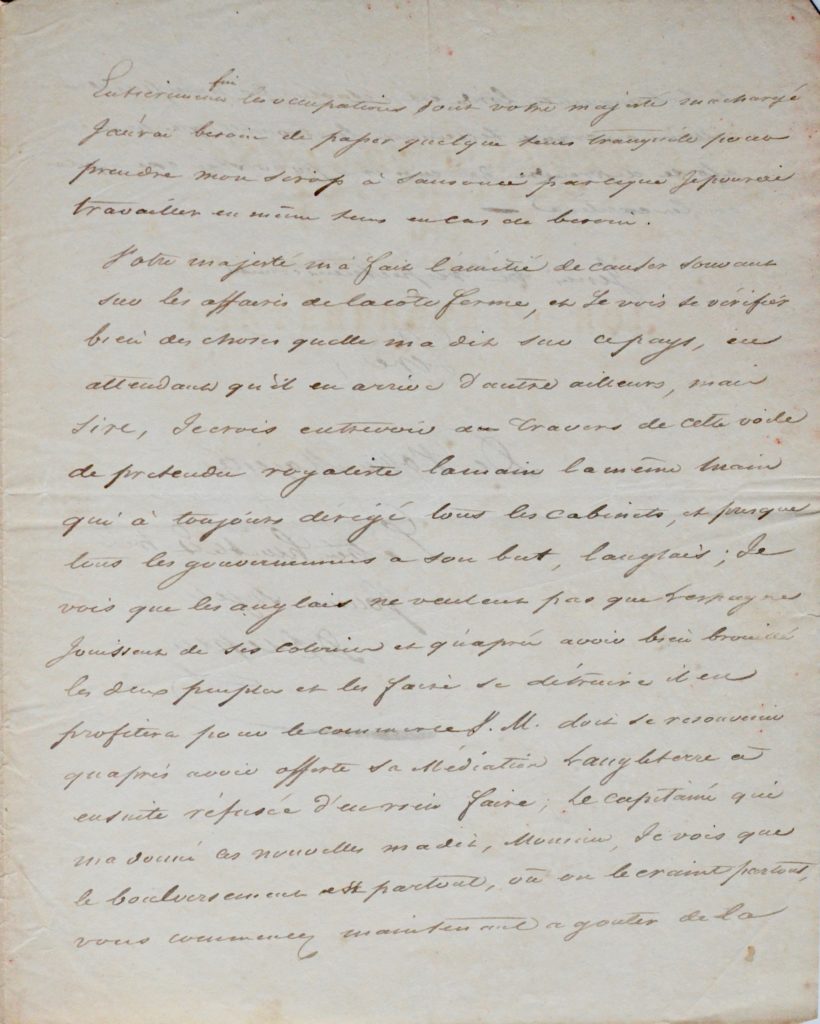 fini
les occupations dont votre majesté ma chargé
J'aurai besoin de passer quelque tems tranquile pour
prendre mon sirop à Sansouci parceque Je pourai
travailler en même tems en cas de besoin.
Votre majesté m'a fait lamitié de causer souvant
sur les affaires de la côte ferme, et Je vois se vérifier
bien des choses quelle ma dit sur ce pays, en
attendant qu'il en arrive d'autre ailleurs, mais
Sire, Je crois entrevoir au travers de cette voile
de pretendu royaliste lamain la même main
qui à toujours dirigé tous les cabinets, et presque
tous les gouvernemens a son but, langlais; Je
vois que les anglais ne veulent pas que Lespagne
Jouissent de ses colonies et qu'aprés avoir bien brouillé
les deux peuples et les faire se détruire il en
profitera pour le commerce V. M. doit se resouvenir
quaprés avoir offerte sa Médiation Langleterre à
ensuite réfusée d'en rien faire; Le capitaine qui
ma donné ces nouvelles ma dit, Monsieur, Je vois que
le boulversement est partout, où on le craint partout,
vous commencez maintenant a gouter de la